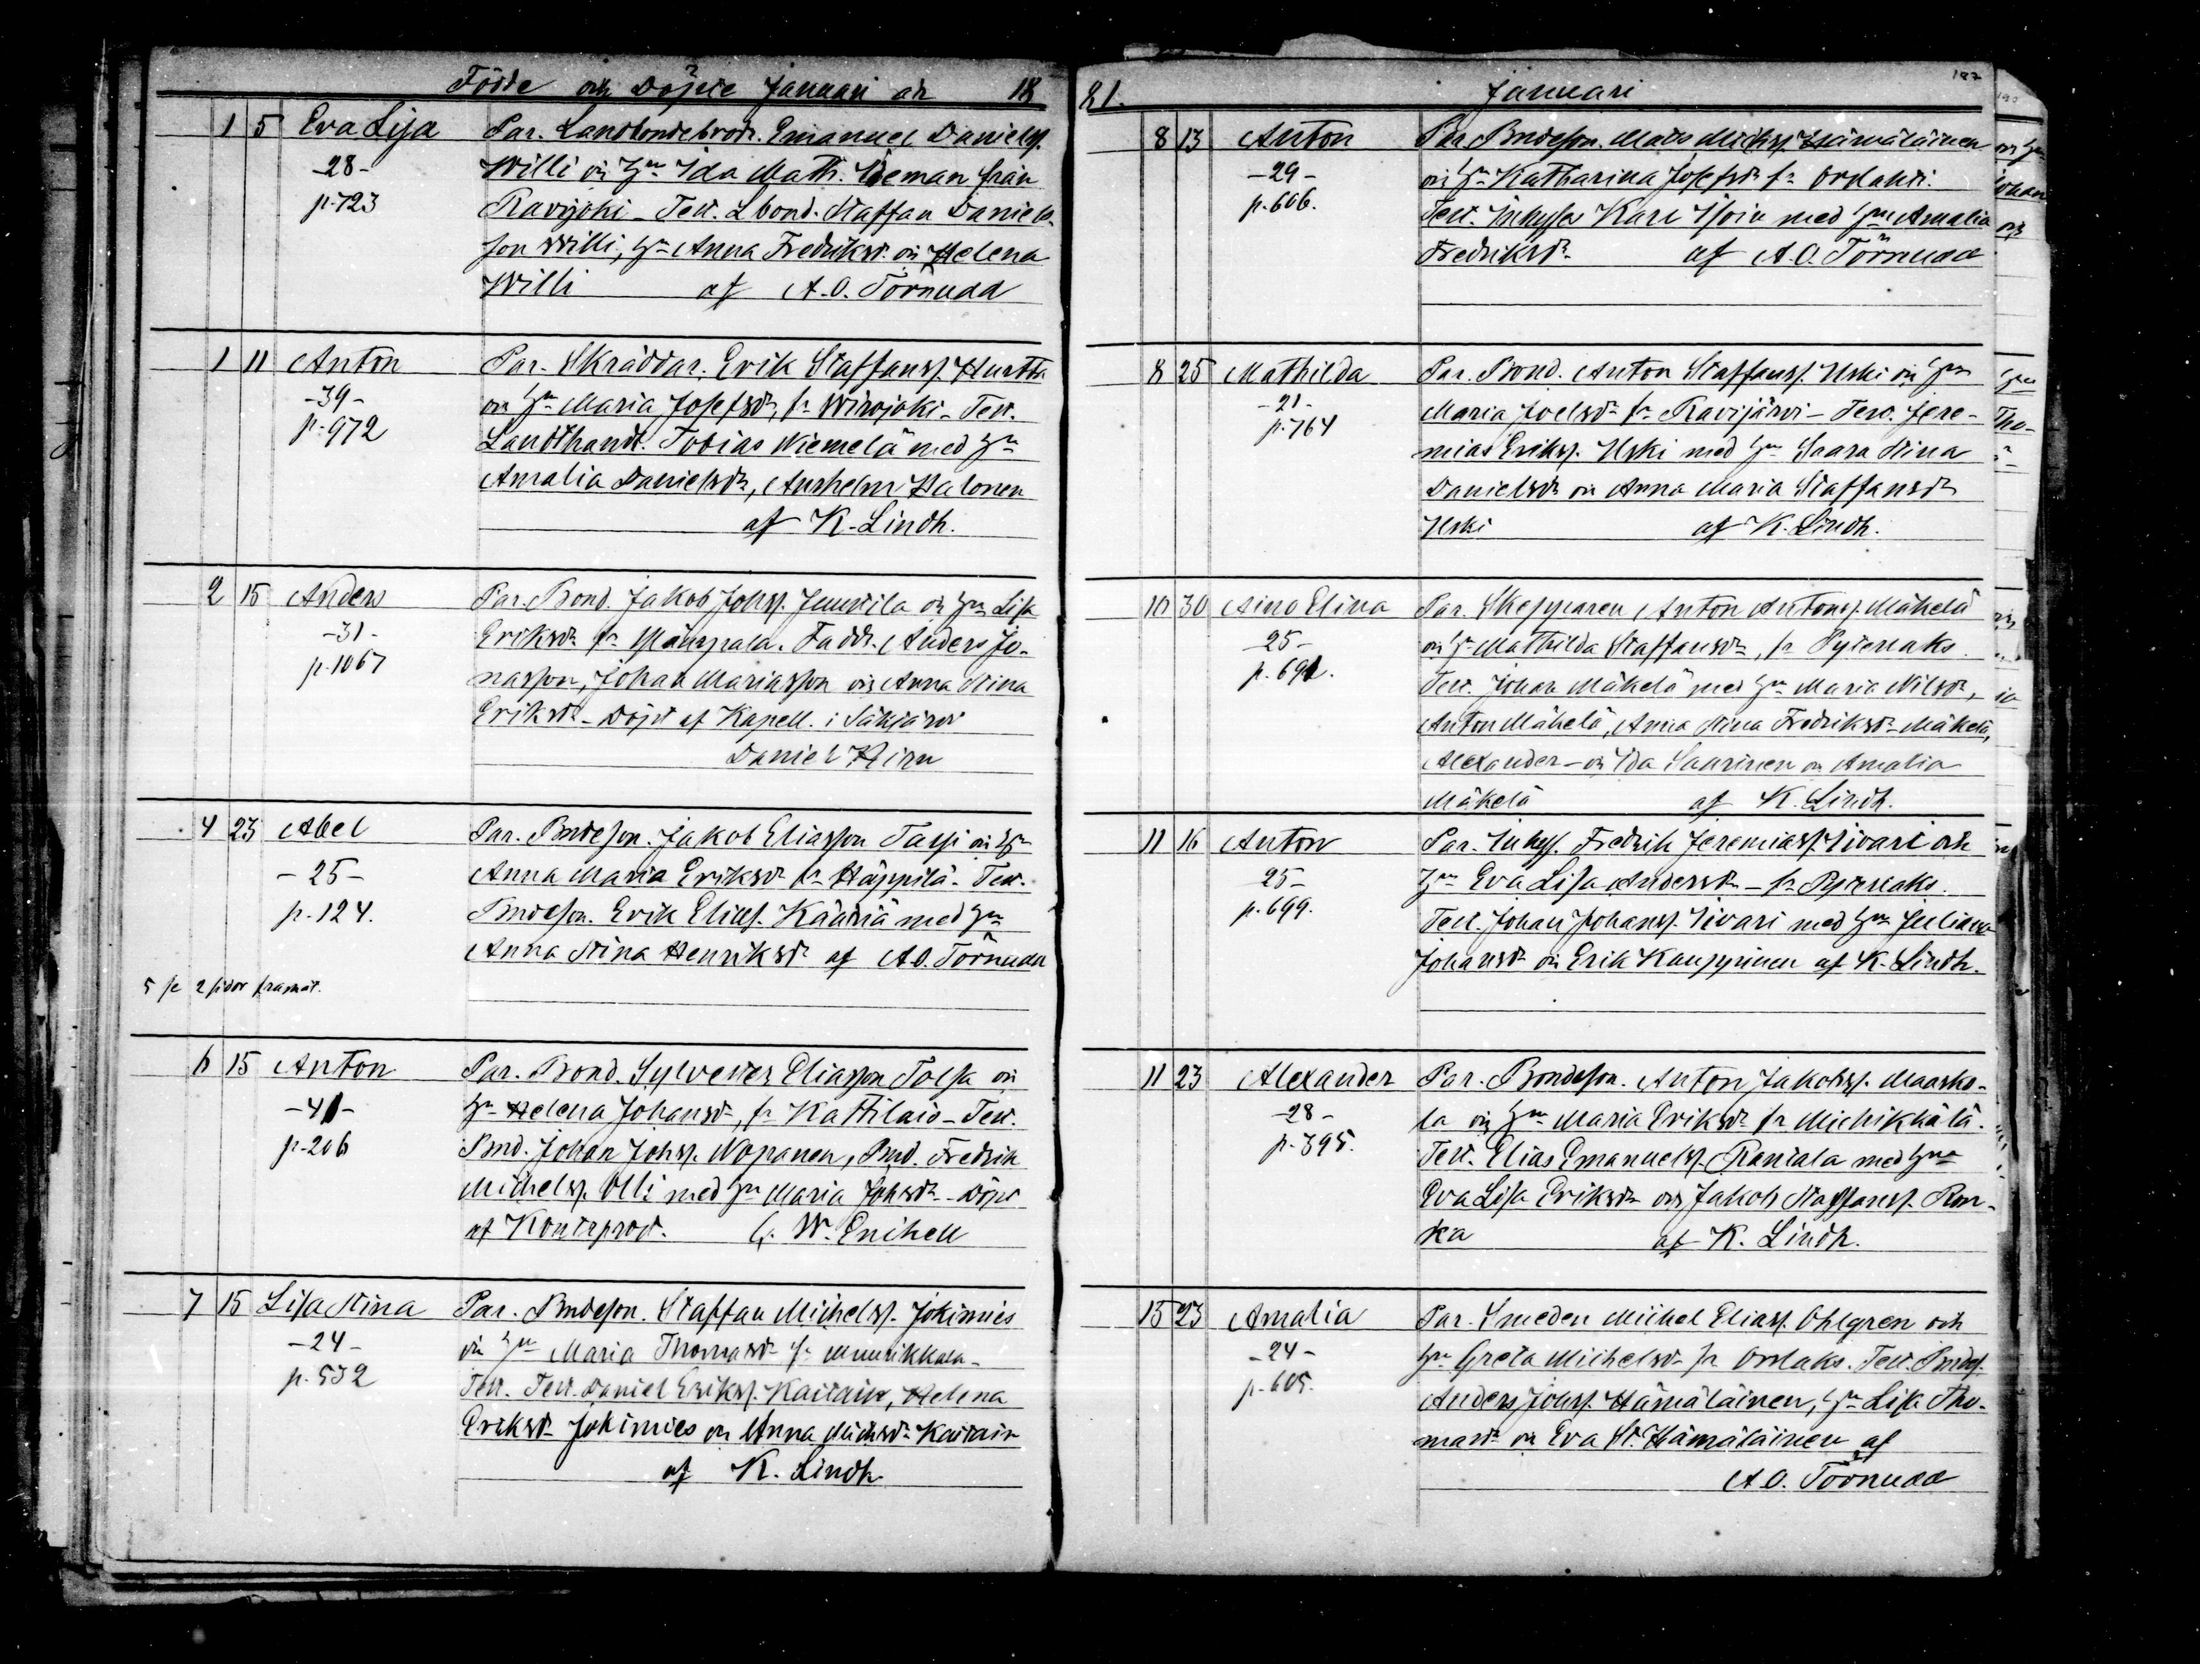 Födde och Döpte Januari år 18
1 5 Eva Lisa Par. Landbondebrodr. Emanuel Danielss.
-28- Willi och Hu Ida Math. Ideman från
p. 723 Ravijoki - Test. Lbond. Staffan Daniels-
son Willi, Hu Anna Fredriksdr och Helena
Willi af A.O. Törnudd
1 11 Anton Par. Skräddar. Erik Staffanss. Hurtta
-39- och Hu Maria Josefsdr, fr Wirojoki - Test.
p. 972 Landthandl. Tobias Niemelä med Hu
Amalia Danielsdr, Anshelm Halonen
af K. Lindh.
2 15 Anders Par. Bond. Jakob Johss. Junttila och Hu Lisa
-31- Eriksdr fr . Faddr. Anders Jo-
p. 1067 nasson, Johan Mariasson och Anna Stina
Eriksdr - Döpt af Kapell. i Säkjärvi
Daniel Hirn
4 23 Abel Par. Bndeson. Jakob Eliasson Tassi och Hu
- 25 - Anna Maria Eriksdr fr Häppilä - Test.
p. 124. Bndeson. Erik Eliass. Kääriä med Hu
Anna Stina Henriksdr af A.O. Törnudd
5 se 2 sidor framåt.
6 15 Anton Par. Bond. Sylvester Eliasson Tolsa och
-41- Hu Helena Johansdr, fr Kattilais - Test.
p. 206 Bnd. Johan Johss. Nopanen, Bnd. Fredrik
Michelss. Olli med Hu Maria Johsdr - Döpt
af Kontrprost. G. W. Enihell
7 15 Lisa Stina Par. Bndeson. Staffan Michelss. Jokimies
-24- och Hu Maria Thomasdr fr Muurikkala -
p. 532 Test. Test. Daniel Erikss. Kaitain, Helena
Eriksdr Jokimies och Anna Michsdr Kaitain
af K. Lindh
81. Januari 187
8 13 Anton Par. Bndeson. Mats Michss. Hämäläinen
-29- och Hu Katharina Josefsdr fr Orslahti.
p. 606. Test. Inhyses Karl Ijoin med Hu Amalia
Fredriksdr af A.O. Törnudd
8 25 Mathilda Par. Bond. Anton Staffanss. Uski och Hu
-21- Maria Joelsdr fr Ravijärvi - Test. Jere-
p. 764 mias Erikss. Uski med Hu Saara Stina
Danielsdr och Anna Maria Staffansdr
Uski af K. Lindh.
10 30 Aino Elina Par. Skepparen Anton Antonss. Mäkelä
25- och Hu Mathilda Staffansdr, fr Pyterlaks.
p. 691. Test. Johan Mäkelä med Hu Maria Nilsdr,
Anton Mäkelä, Anna Stina Fredriksdr Mäkelä,
Alexander - och Ida Saarinen och Amalia
Mäkelä af K. Lindh.
11 16 Anton Par. Inhys. Fredrik Jeremiass. Sivari och
25- Hu Eva Lisa Andersdr - fr Pyterlaks.
p. 699. Test. Johan Johanss. Sivari med Hu Juliana
Johansdr och Erik Kauppinen af K. Lindh.
11 23 Alexander Par. Bondeson. Anton Jakobss. Maasko-
-28- la och Hu Maria Eriksdr fr Miehikkälä.
p. 395. Test. Elias Emanuelss. Rantala med Hu
Eva Lisa Eriksdr och Jakob Staffanss. Ron-
ka af K. Lindh.
15 23 Amalia Par. Smeden Michel Eliass. Ohlgren och
-24- Hu Greta Michelsdr fr Orslaks. Test. Bndes.
p. 605. Anders Johss. Hämäläinen, Hu Lisa Tho-
masdr och Eva St. Hämäläinen af
A.O. Törnudd